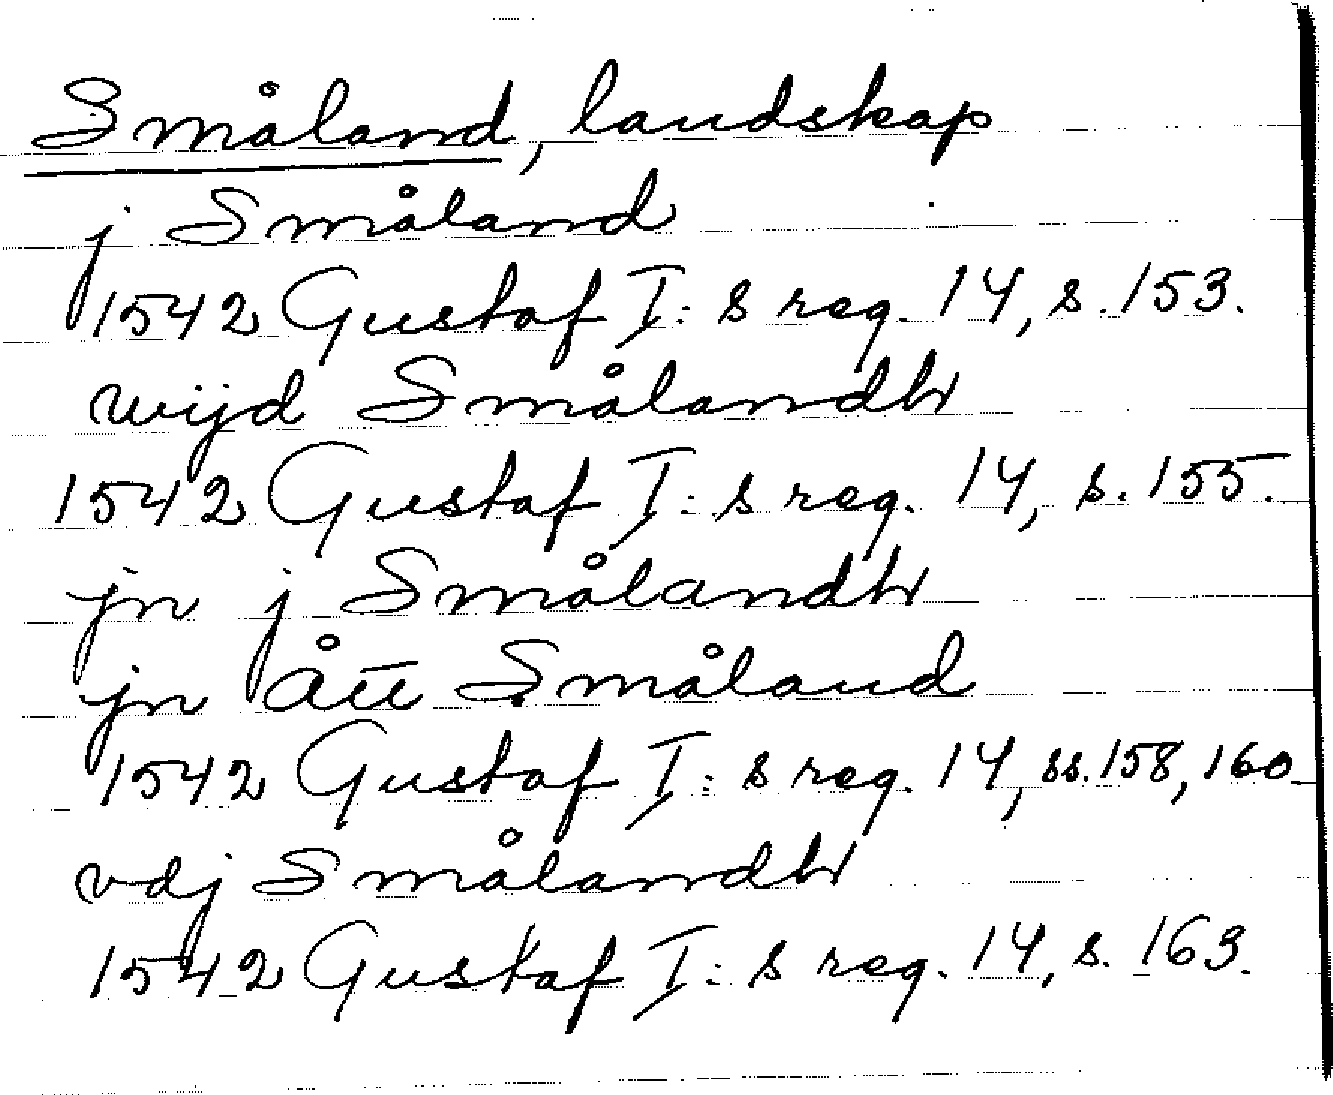 Småland, landskap
j Småland
1542 Gustaf I:s reg. 14, s. 153.
wijd Smålandh
1542 Gustaf I:s reg. 14, s. 155.
jn j Smålandh
jn ått Småland
1542 Gustaf I:s reg. 14, ss. 158, 160
vdj Smålandh
1542 Gustaf I:s reg. 14, s. 163.